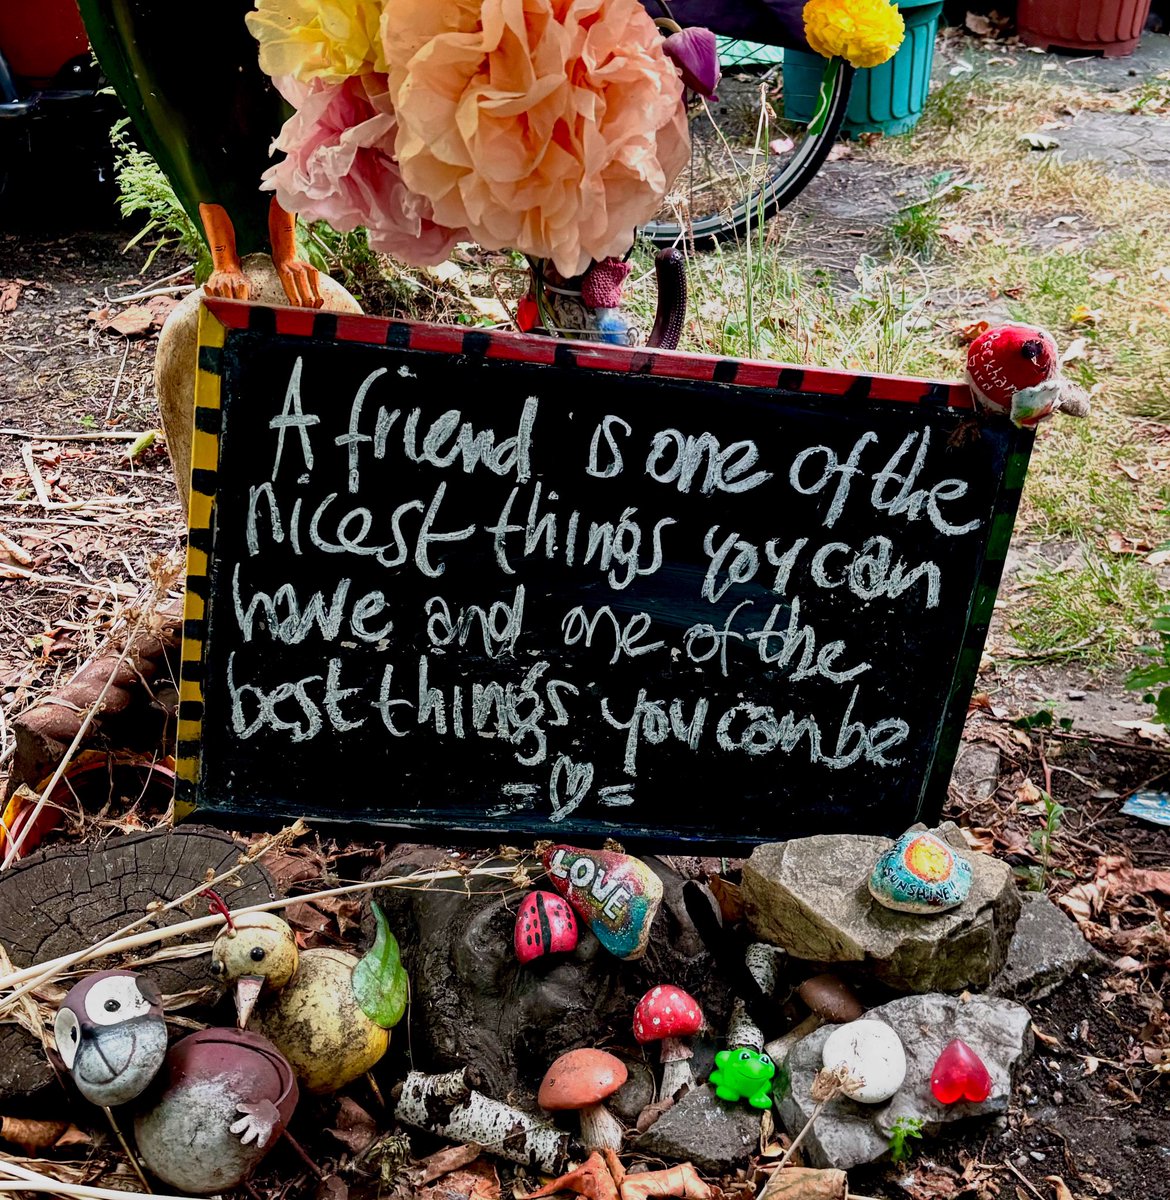 A friend is one of the
nicest things you can
have and one of the
best things you can be
Peckham
bird
LOVE
SUNSHINE!!